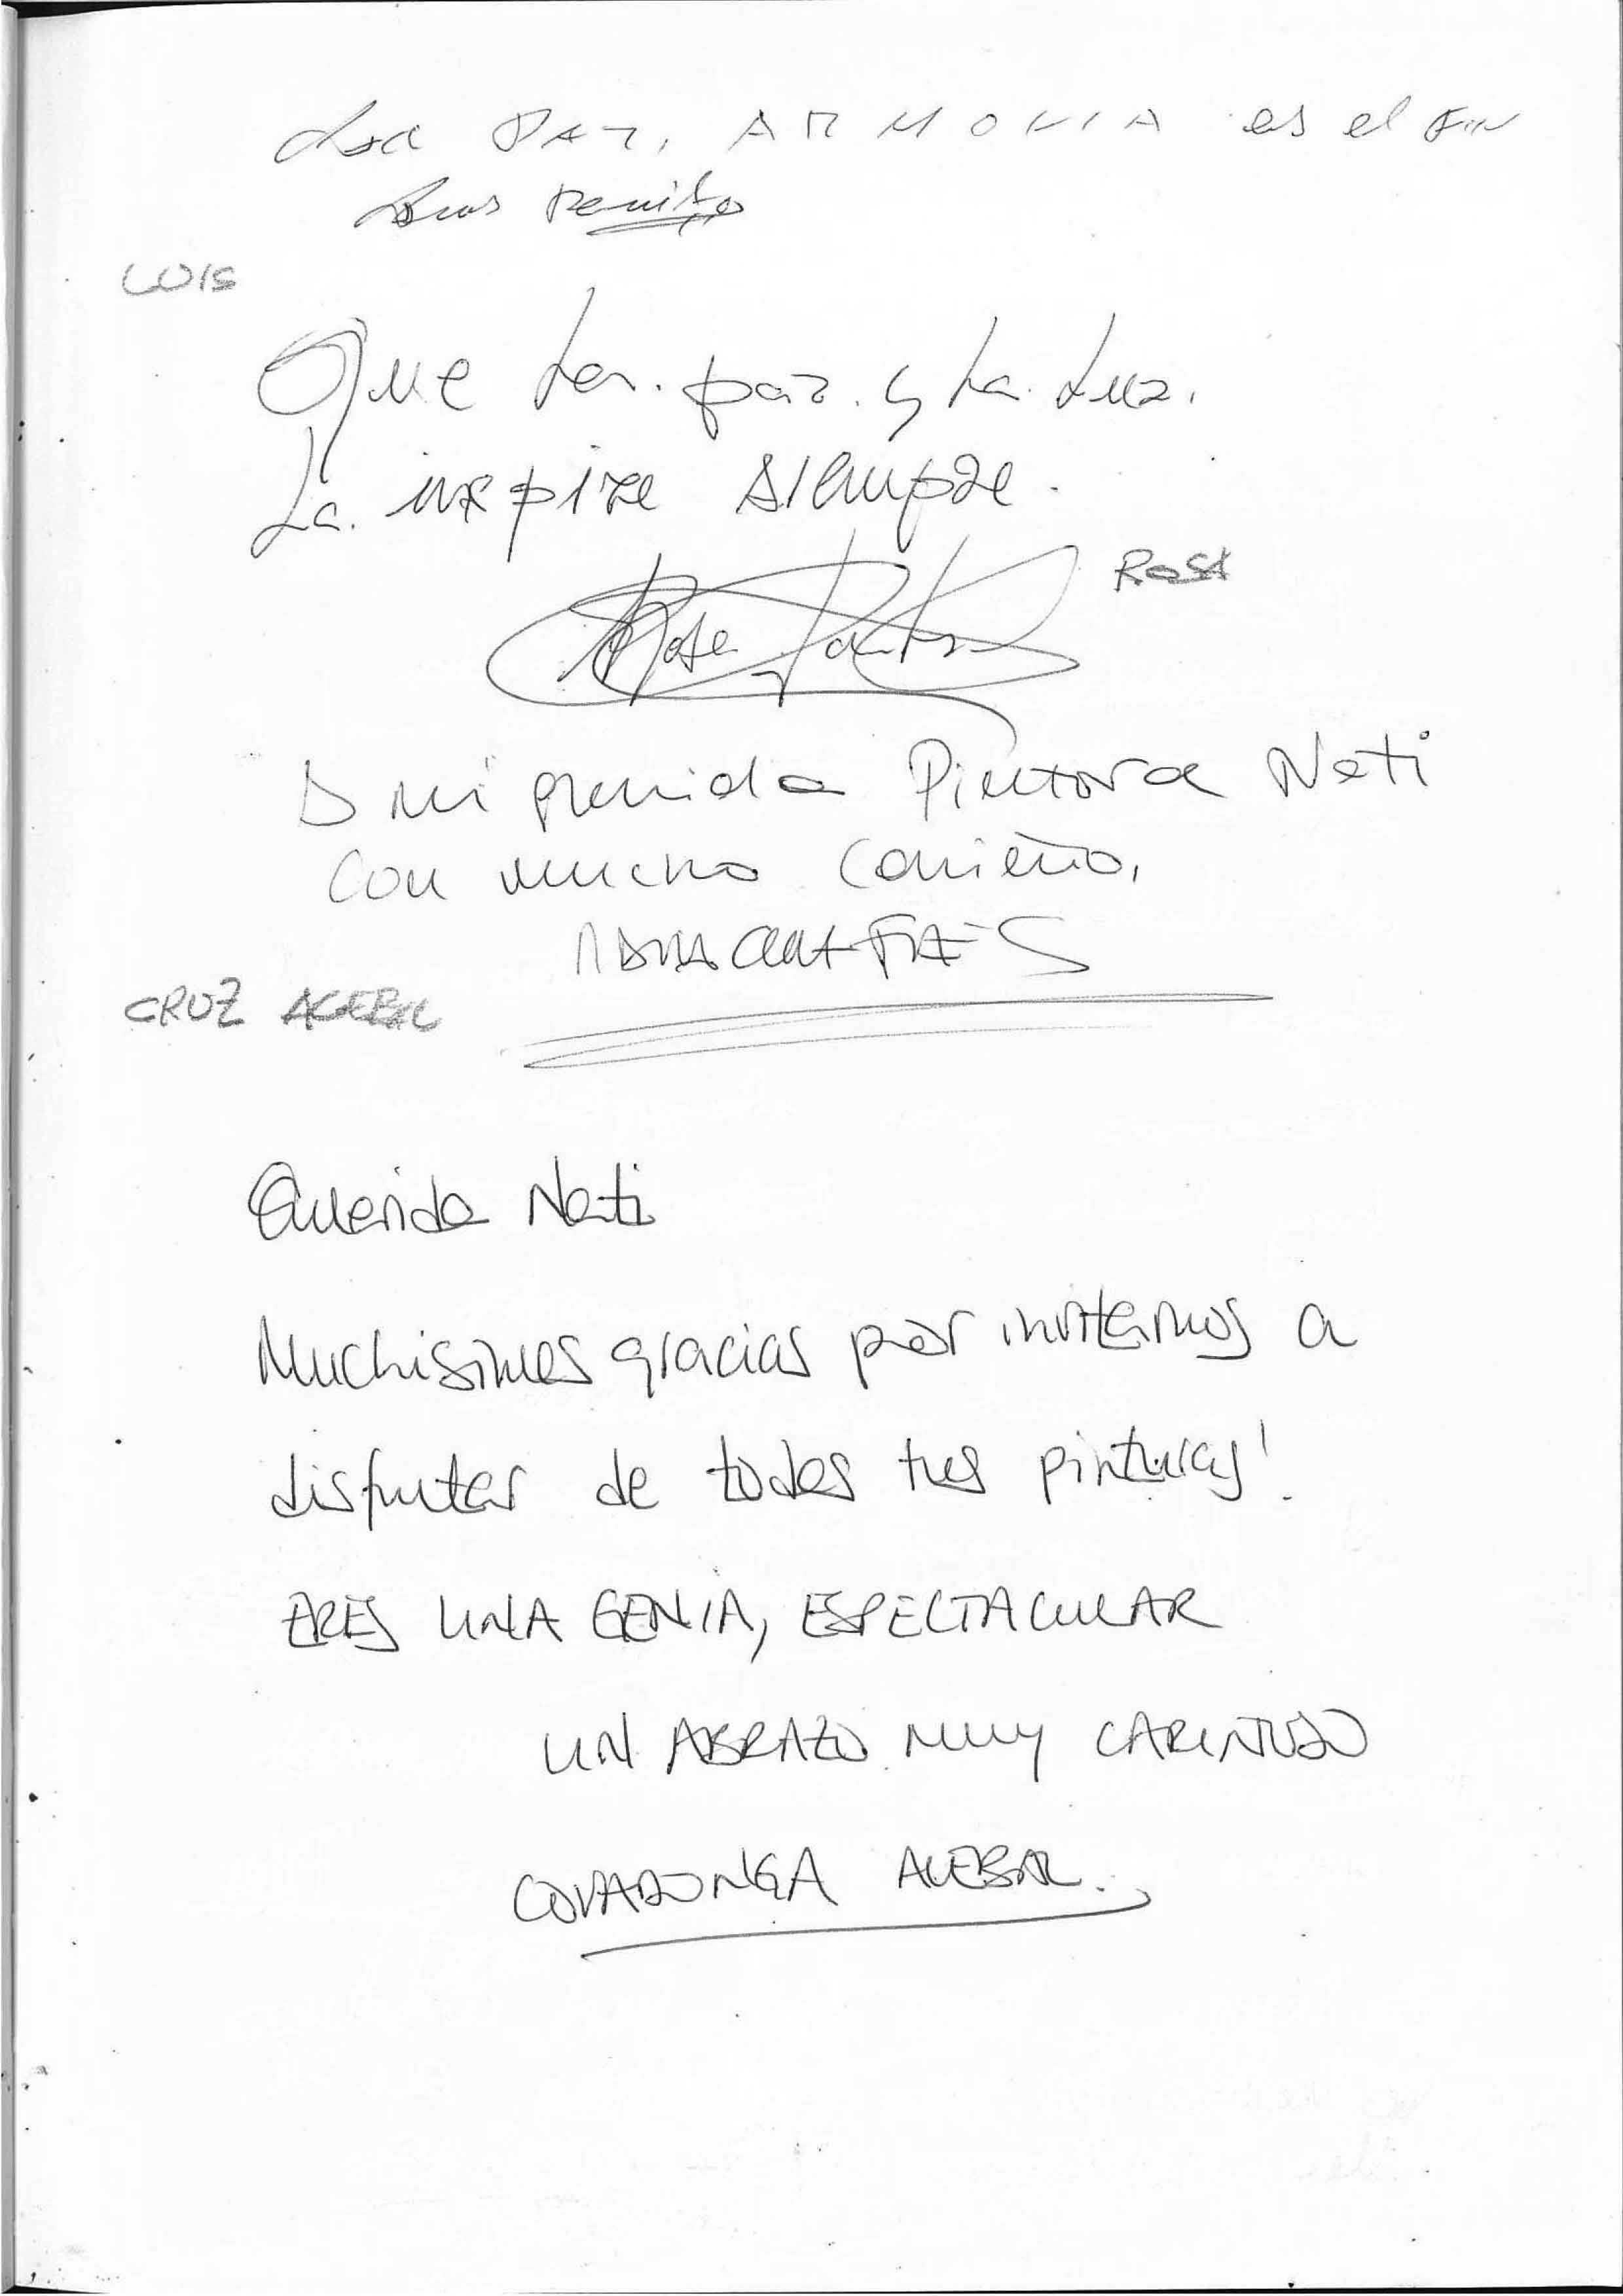 La PAZ, ARMONIA es el FIN
Luis Benito
LUIS
Que La. paz. y La. Luz.
La. inspire siempre.
ROSI
Rosa
A mi querida Pintora Nati
con mucho cariño,
CRUZ ACEBAL
Querida Nati
Muchisimas gracias por invitarnos a
disfrutar de todas tus pinturas!
ERES UNA GENIA, ESPECTACULAR
UN ABRAZO MUY CARIÑOSO
COVADONGA ACEBAL.